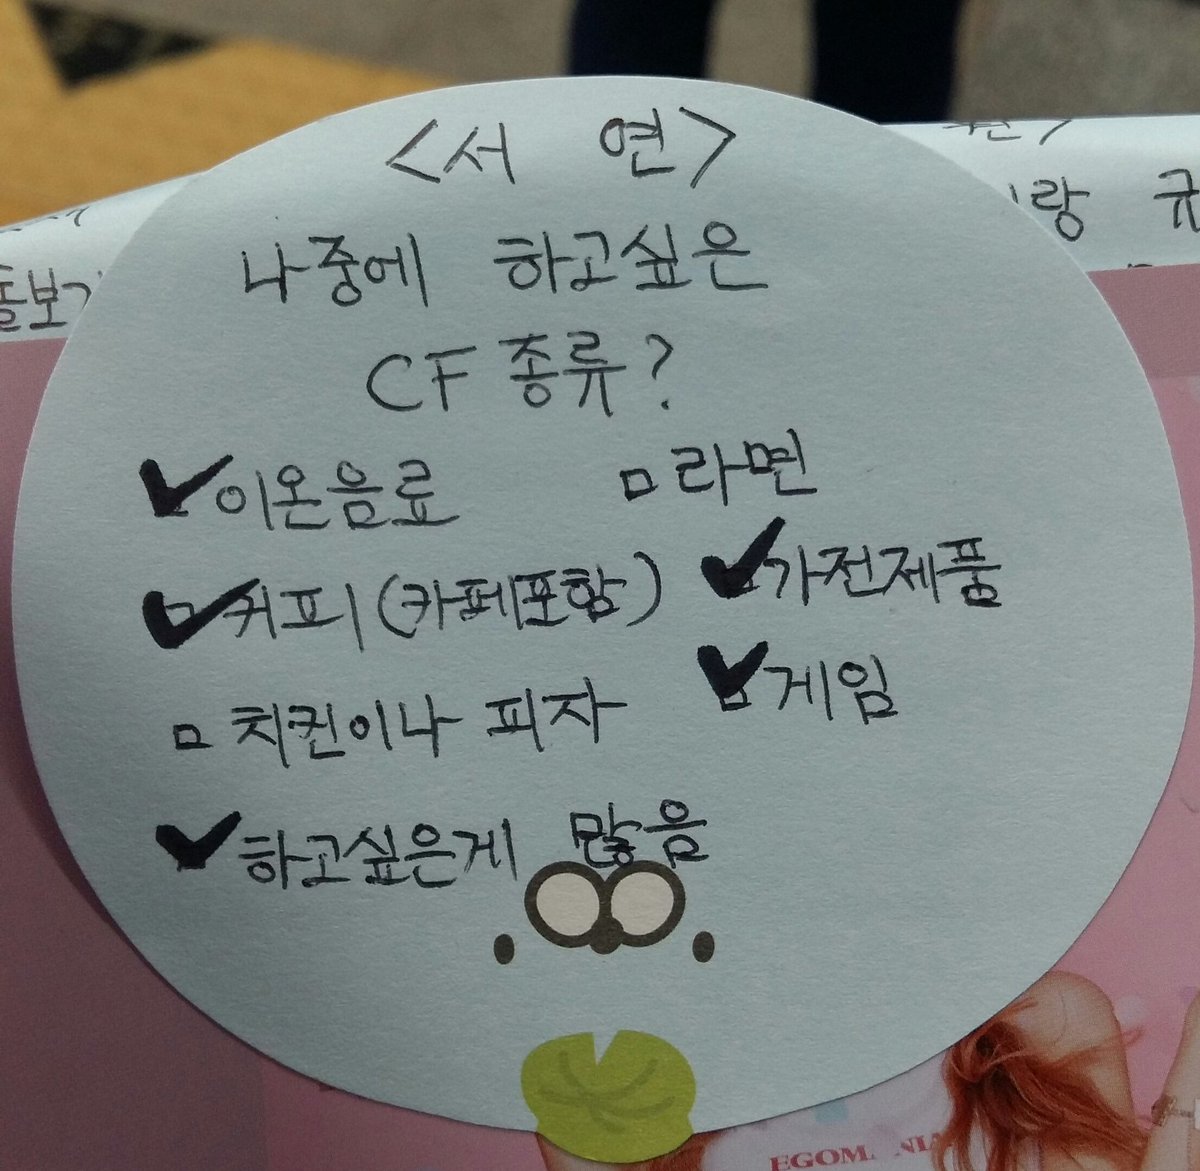 <서 연>
나중에 하고싶은
CF 종류?
이온음료 라면
커피(카페포함) 가전제품
치퀸이나 피자 게임
하고싶은게 많음
랑 규
돌보기
EGOM